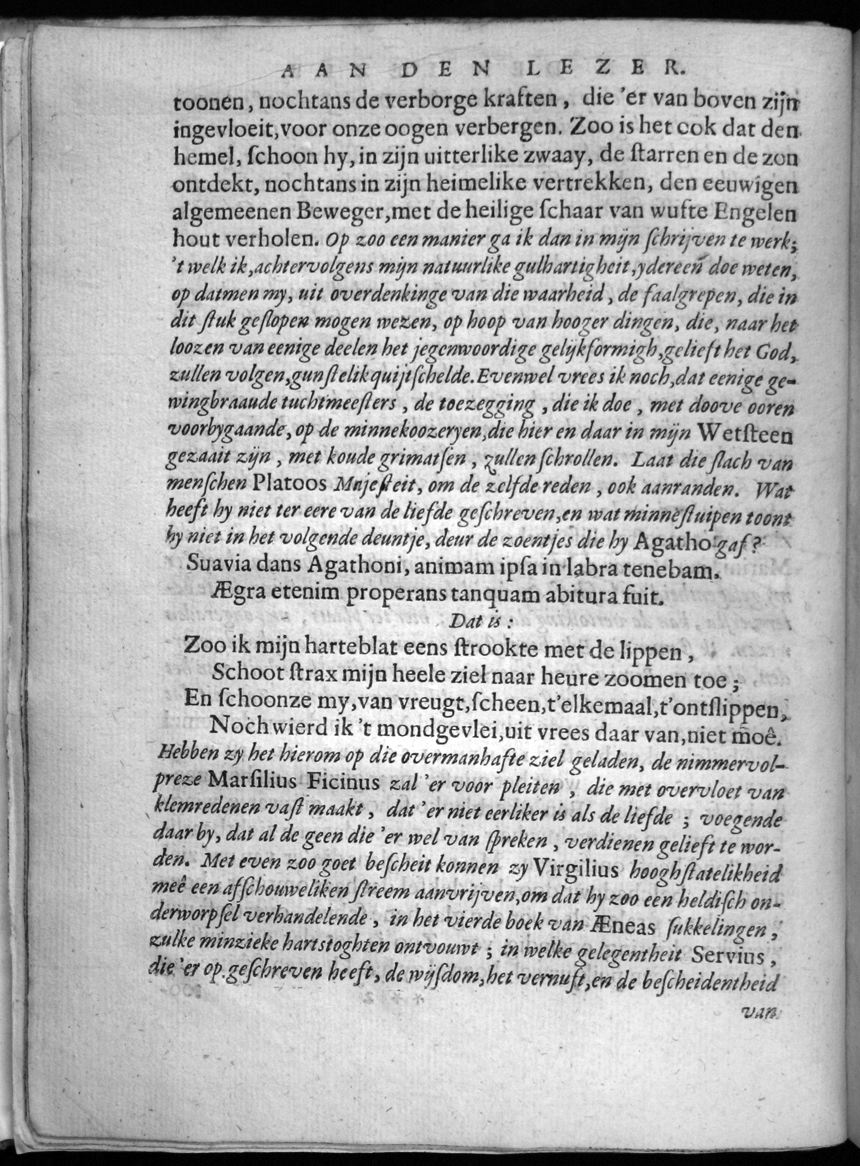 AAN DEN LEZER.
toonen, nochtans de verborge kraften, die 'er van boven zijn
ingevloeit, voor onze oogen verbergen. Zoo is het ook dat den
hemel, ſchoon hy, in zijn uitterlike zwaay, de ſtarren en de zon
ontdekt, nochtans in zijn heimelike vertrekken, den eeuwigen
algemeenen Beweger, met de heilige ſchaar van wufte Engelen
hout verholen. Op zoo een manier ga ik dan in mijn ſchrijven te werk;
't welk ik, achtervolgens mijn natuurlike gulhartigheit, ydereen doe weten,
op datmen my, uit overdenkinge van die waarheid, de faalgrepen, die in
dit ſtuk geſlopen mogen wezen, op hoop van hooger dingen, die, naar het
loozen van eenige deelen het jegenwoordige gelijkformigh, gelieft het God,
zullen volgen, gunſtelik quijtſchelde. Evenwel vrees ik noch, dat eenige ge-
wingbraaude tuchtmeeſters, de toezegging, die ik doe, met doove ooren
voorbygaande, op de minnekoozeryen, die hier en daar in mijn Wetſteen
gezaait zijn, met koude grimatſen, zullen ſchrollen. Laat die ſlach van
menſchen Platoos Majeſteit, om de zelfde reden, ook aanranden. Wat
heeft hy niet ter eere van de liefde geſchreven, en wat minneſtuipen toont
hy niet in het volgende deuntje, deur de zoentjes die hy Agatho gaf?
Suavia dans Agathoni, animam ipſa in labra tenebam.
Ægra etenim properans tanquam abitura fuit.
Dat is:
Zoo ik mijn harteblat eens ſtrookte met de lippen,
Schoot ſtrax mijn heele ziel naar heure zoomen toe;
En ſchoonze my, van vreugt, ſcheen, t'elkemaal, t'ontſlippen,
Noch wierd ik 't mondgevlei, uit vrees daar van, niet moê.
Hebben zy het hierom op die overmanhafte ziel geladen, de nimmervol-
preze Marſilius Ficinus zal 'er voor pleiten, die met overvloet van
klemredenen vaſt maakt, dat 'er niet eerliker is als de liefde; voegende
daar by, dat al de geen die 'er wel van ſpreken, verdienen gelieft te wor-
den. Met even zoo goet beſcheit konnen zy Virgilius hooghſtatelikheid
meê een affchouweliken ſtreem aanvrijven, om dat hy zoo een heldiſch on-
derworpſel verhandelende, in het vierde boek van Æneas ſukkelingen,
zulke minzieke hartstoghten ontvouwt; in welke gelegentheit Servius,
die 'er op geſchreven heeft, de wijſdom, het vernuft, en de beſcheidentheid
van